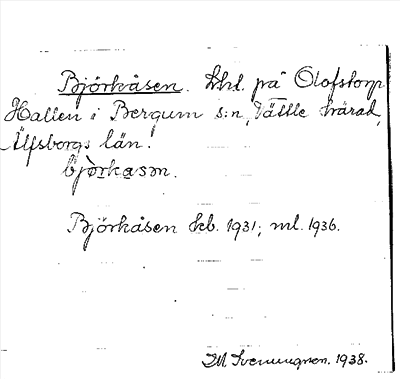 Björkåsen. lht. på Olofstorp
Hallen i Bergum s:n, Vättle härad,
Älfsborgs län.
bjòrkasən.
Björkåsen kb. 1931; ml. 1936.
1938.